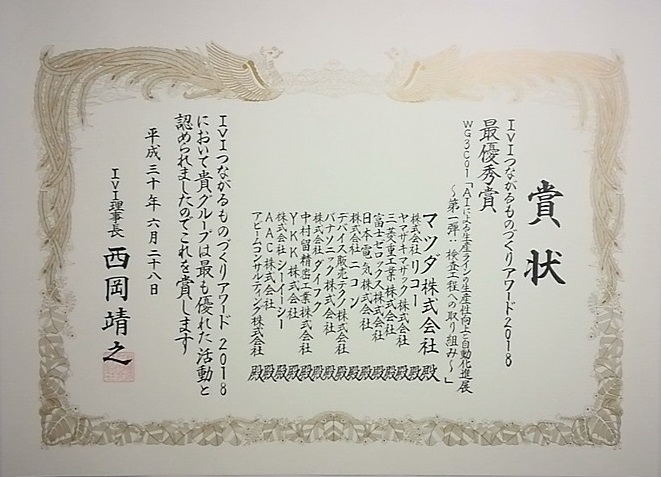 賞状
IVIつながるものづくりアワード2018
最優秀賞
WG3C01「AIによる生産ラインの生産性向上と自動化進展
〜第一弾：検査工程への取り組み〜」
マツダ株式会社 殿
株式会社リコー 殿
ヤマザキマザック株式会社 殿
三菱重工業株式会社 殿
富士ゼロックス株式会社 殿
日本電気株式会社 殿
株式会社ニコン 殿
デバイス販売テクノ株式会社 殿
パナソニック株式会社 殿
株式会社ダイフク 殿
中村留精密工業株式会社 殿
YKK株式会社 殿
株式会社シーイーシー 殿
AAC株式会社 殿
アビームコンサルティング株式会社 殿
IVIつながるものづくりアワード2018
において貴グループは最も優れた活動と
認められましたのでこれを賞します
平成三十年六月二十八日
IVI理事長 西岡靖之